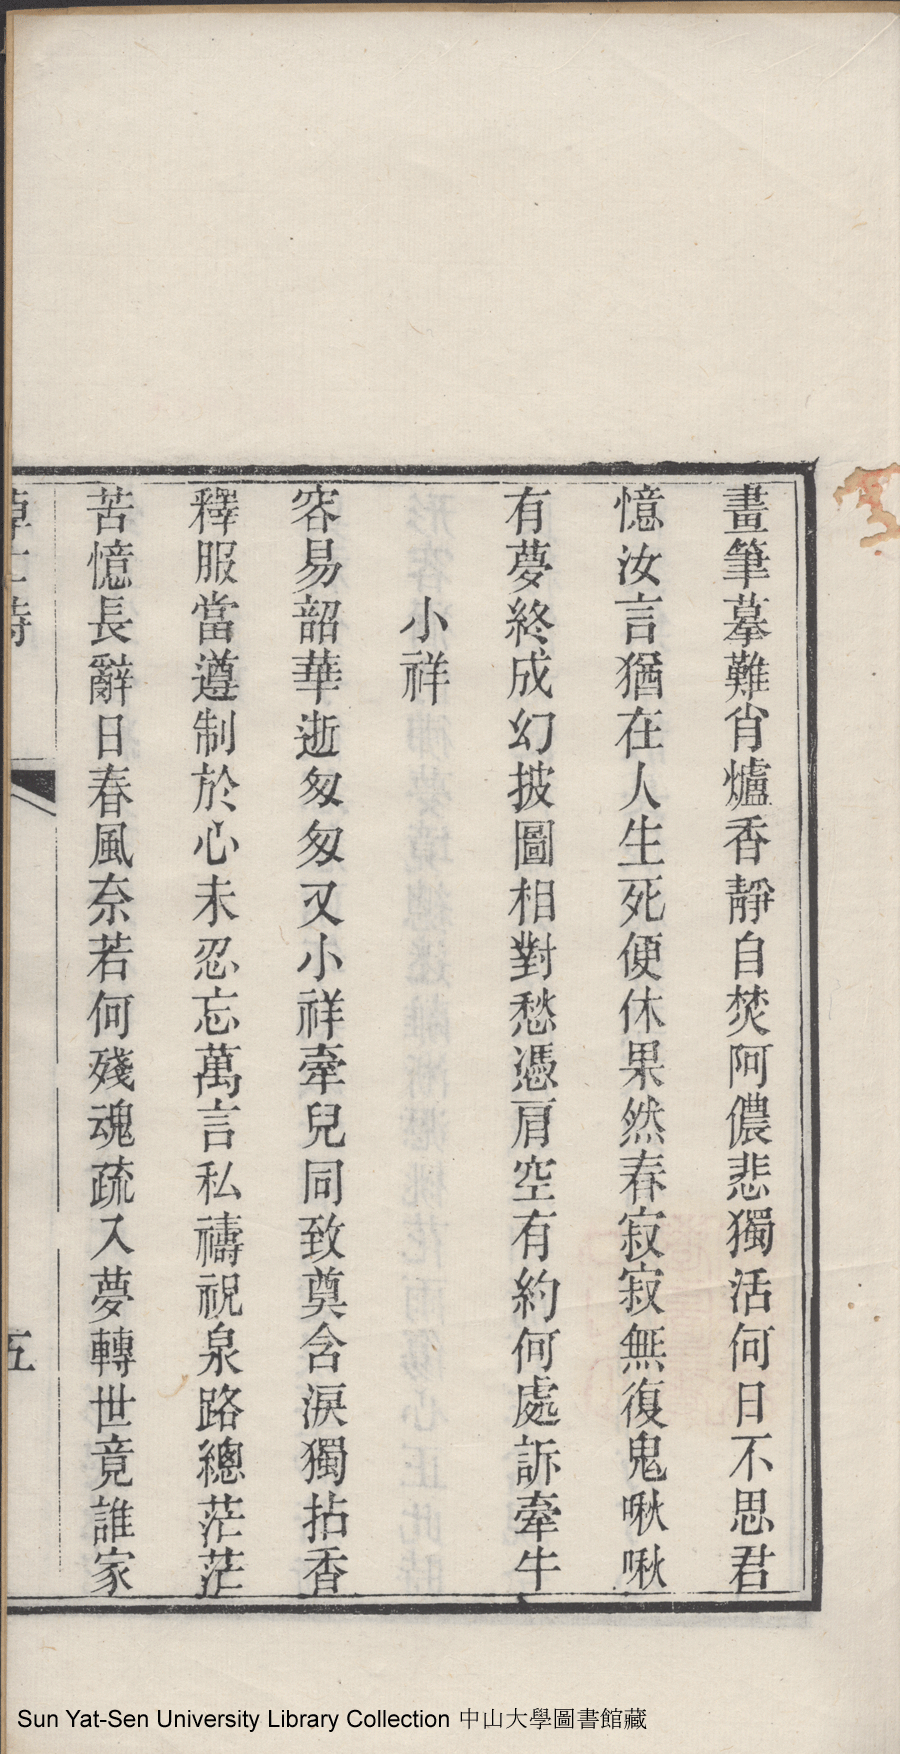 畫筆摹難肖爐香靜自焚阿儂悲獨活何日不思君
憶汝言猶在人生死便休果然春寂寂無復鬼啾啾
有夢終成幻披圖相對愁憑肩空有約何處訴牽牛
小祥
容易韶華逝匆匆又小祥牽兒同致奠含淚獨拈香
釋服當遵制於心未忍忘萬言私禱祝泉路總茫茫
苦憶長辭日春風奈若何殘魂疏入夢轉世竟誰家
悼亡詩
五
Sun Yat-Sen University Library Collection 中山大學圖書館藏